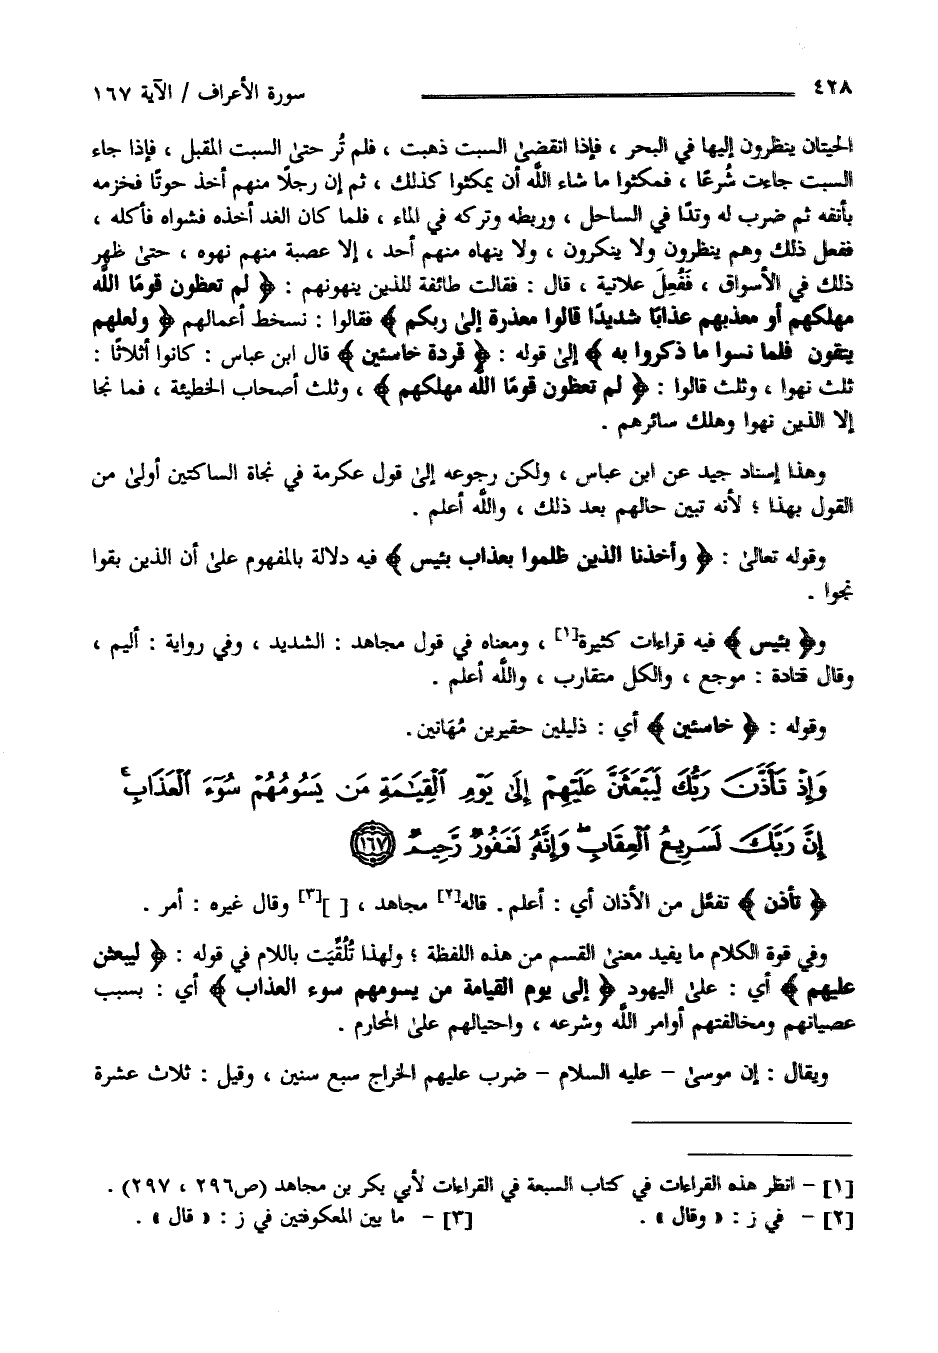 ٤٢٨ سورة الأعراف / الآية ١٦٧
الحيتان ينظرون إليها في البحر ، فإذا انقضىٰ السبت ذهبت ، فلم تُر حتىٰ السبت المقبل ، فإذا جاء
السبت جاءت شُرعًا ، فمكثوا ما شاء اللَّه أن يمكثوا كذلك ، ثم إن رجلًا منهم أخذ حوتًا فخزمه
بأنفه ثم ضرب له وتدًا في الساحل ، وربطه وتركه في الماء ، فلما كان الغد أخذه فشواه فأكله ،
ففعل ذلك وهم ينظرون ولا ينكرون ، ولا ينهاه منهم أحد ، إلا عصبة منهم نهوه ، حتىٰ ظهر
ذلك في الأسواق ، فَفُعِلَ علانية ، قال : فقالت طائفة للذين ينهونهم : ﴿ لم تعظون قومًا اللَّه
مهلكهم أو معذبهم عذابًا شديدًا قالوا معذرة إلىٰ ربكم ﴾ فقالوا : نسخط أعمالهم ﴿ ولعلهم
يتقون فلما نسوا ما ذكروا به ﴾ إلىٰ قوله : ﴿ قردة خاسئين ﴾ قال ابن عباس : كانوا أثلاثًا :
ثلث نهوا ، وثلث قالوا : ﴿ لم تعظون قومًا اللَّه مهلكهم ﴾ ، وثلث أصحاب الخطيئة ، فما نجا
إلا الذين نهوا وهلك سائرهم .
وهذا إسناد جيد عن ابن عباس ، ولكن رجوعه إلىٰ قول عكرمة في نجاة الساكتين أولىٰ من
القول بهذا ؛ لأنه تبين حالهم بعد ذلك ، واللَّه أعلم .
وقوله تعالىٰ : ﴿ وأخذنا الذين ظلموا بعذاب بئيس ﴾ فيه دلالة بالمفهوم علىٰ أن الذين بقوا
نجوا .
و﴿ بئيس ﴾ فيه قراءات كثيرة[١] ، ومعناه في قول مجاهد : الشديد ، وفي رواية : أليم ،
وقال قتادة : موجع ، والكل متقارب ، واللَّه أعلم .
وقوله : ﴿ خاسئين ﴾ أي : ذليلين حقيرين مُهَانين.
وَإِذْ تَأَذَّنَ رَبُّكَ لَيَبْعَثَنَّ عَلَيْهِمْ إِلَىٰ يَوْمِ ٱلْقِيَٰمَةِ مَن يَسُومُهُمْ سُوٓءَ ٱلْعَذَابِ ۗ
إِنَّ رَبَّكَ لَسَرِيعُ ٱلْعِقَابِ ۖ وَإِنَّهُۥ لَغَفُورٌ رَّحِيمٌ ﴿١٦٧﴾
﴿ تأذن ﴾ تفعَّل من الأذان أي : أعلم. قاله[٢] مجاهد ، [ ][٣] وقال غيره : أمر .
وفي قوة الكلام ما يفيد معنىٰ القسم من هذه اللفظة ؛ ولهذا تُلُقِّيَت باللام في قوله : ﴿ ليبعثن
عليهم ﴾ أي : علىٰ اليهود ﴿ إلى يوم القيامة من يسومهم سوء العذاب ﴾ أي : بسبب
عصيانهم ومخالفتهم أوامر اللَّه وشرعه ، واحتيالهم علىٰ المحارم .
ويقال : إن موسىٰ – عليه السلام – ضرب عليهم الخراج سبع سنين ، وقيل : ثلاث عشرة
[١] – انظر هذه القراءات في كتاب السبعة في القراءات لأبي بكر بن مجاهد (ص٢٩٦ ، ٢٩٧) .
[٢] – في ز : « وقال » . [٣] – ما بين المعكوفتين في ز : « قال » .